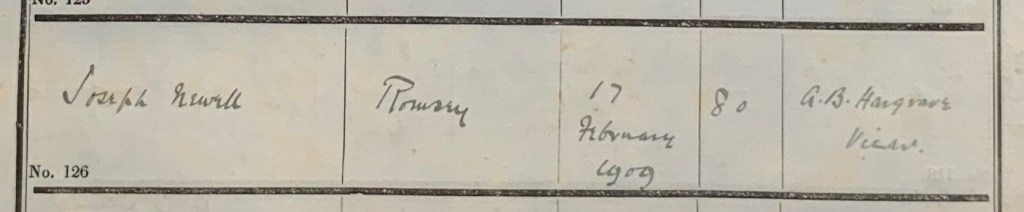 No. 125
Joseph Newell Romsey 17 February 1909 80 A. B. Hargrave Vicar.
No. 126